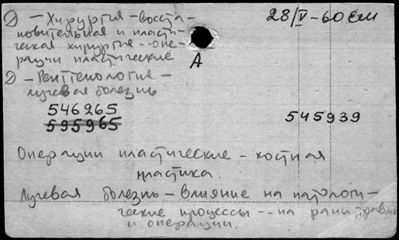 ① – Хирургия – восста-
новительная и пласти-
ческая хирургия -- опе-
рации пластические
28/V – 60 Ем
A
② – Рентгенология –
лучевая болезнь
546265
595965
545939
Операции пластические – костная
пластика.
Лучевая болезнь – влияние на патологи-
ческие процессы -- на раны травм
и операции.